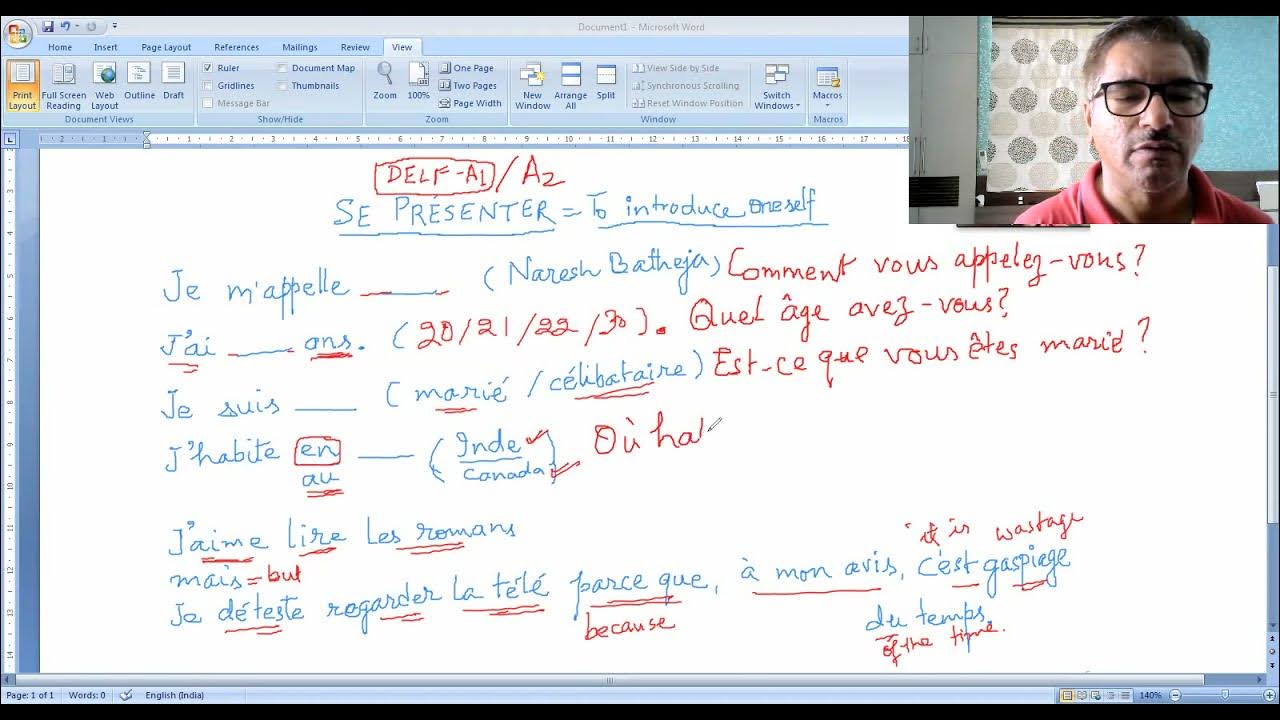 Document1 - Microsoft Word
Home Insert Page Layout References Mailings Review View
Print Layout
Full Screen Reading
Web Layout
Outline
Draft
Document Views
Ruler
Gridlines
Message Bar
Document Map
Thumbnails
Show/Hide
Zoom
100%
One Page
Two Pages
Page Width
Zoom
New Window
Arrange All
Split
View Side by Side
Synchronous Scrolling
Reset Window Position
Switch Windows
Window
Macros
Macros
DELF-A1/A2
SE PRESENTER = To introduce oneself
Je m'appelle ____ (Naresh Batheja) Comment vous appelez-vous?
J'ai ____ ans. (20/21/22/30). Quel âge avez-vous?
Je suis ____ (marié / célibataire) Est-ce que vous êtes marié?
J'habite en ____ (Inde Où ha
au Canada)
J'aime lire les romans
it is wastage
mais = but
Je déteste regarder la télé parce que, à mon avis, c'est gaspiage
because
du temps.
of the time.
Page: 1 of 1 Words: 0 English (India) 140%